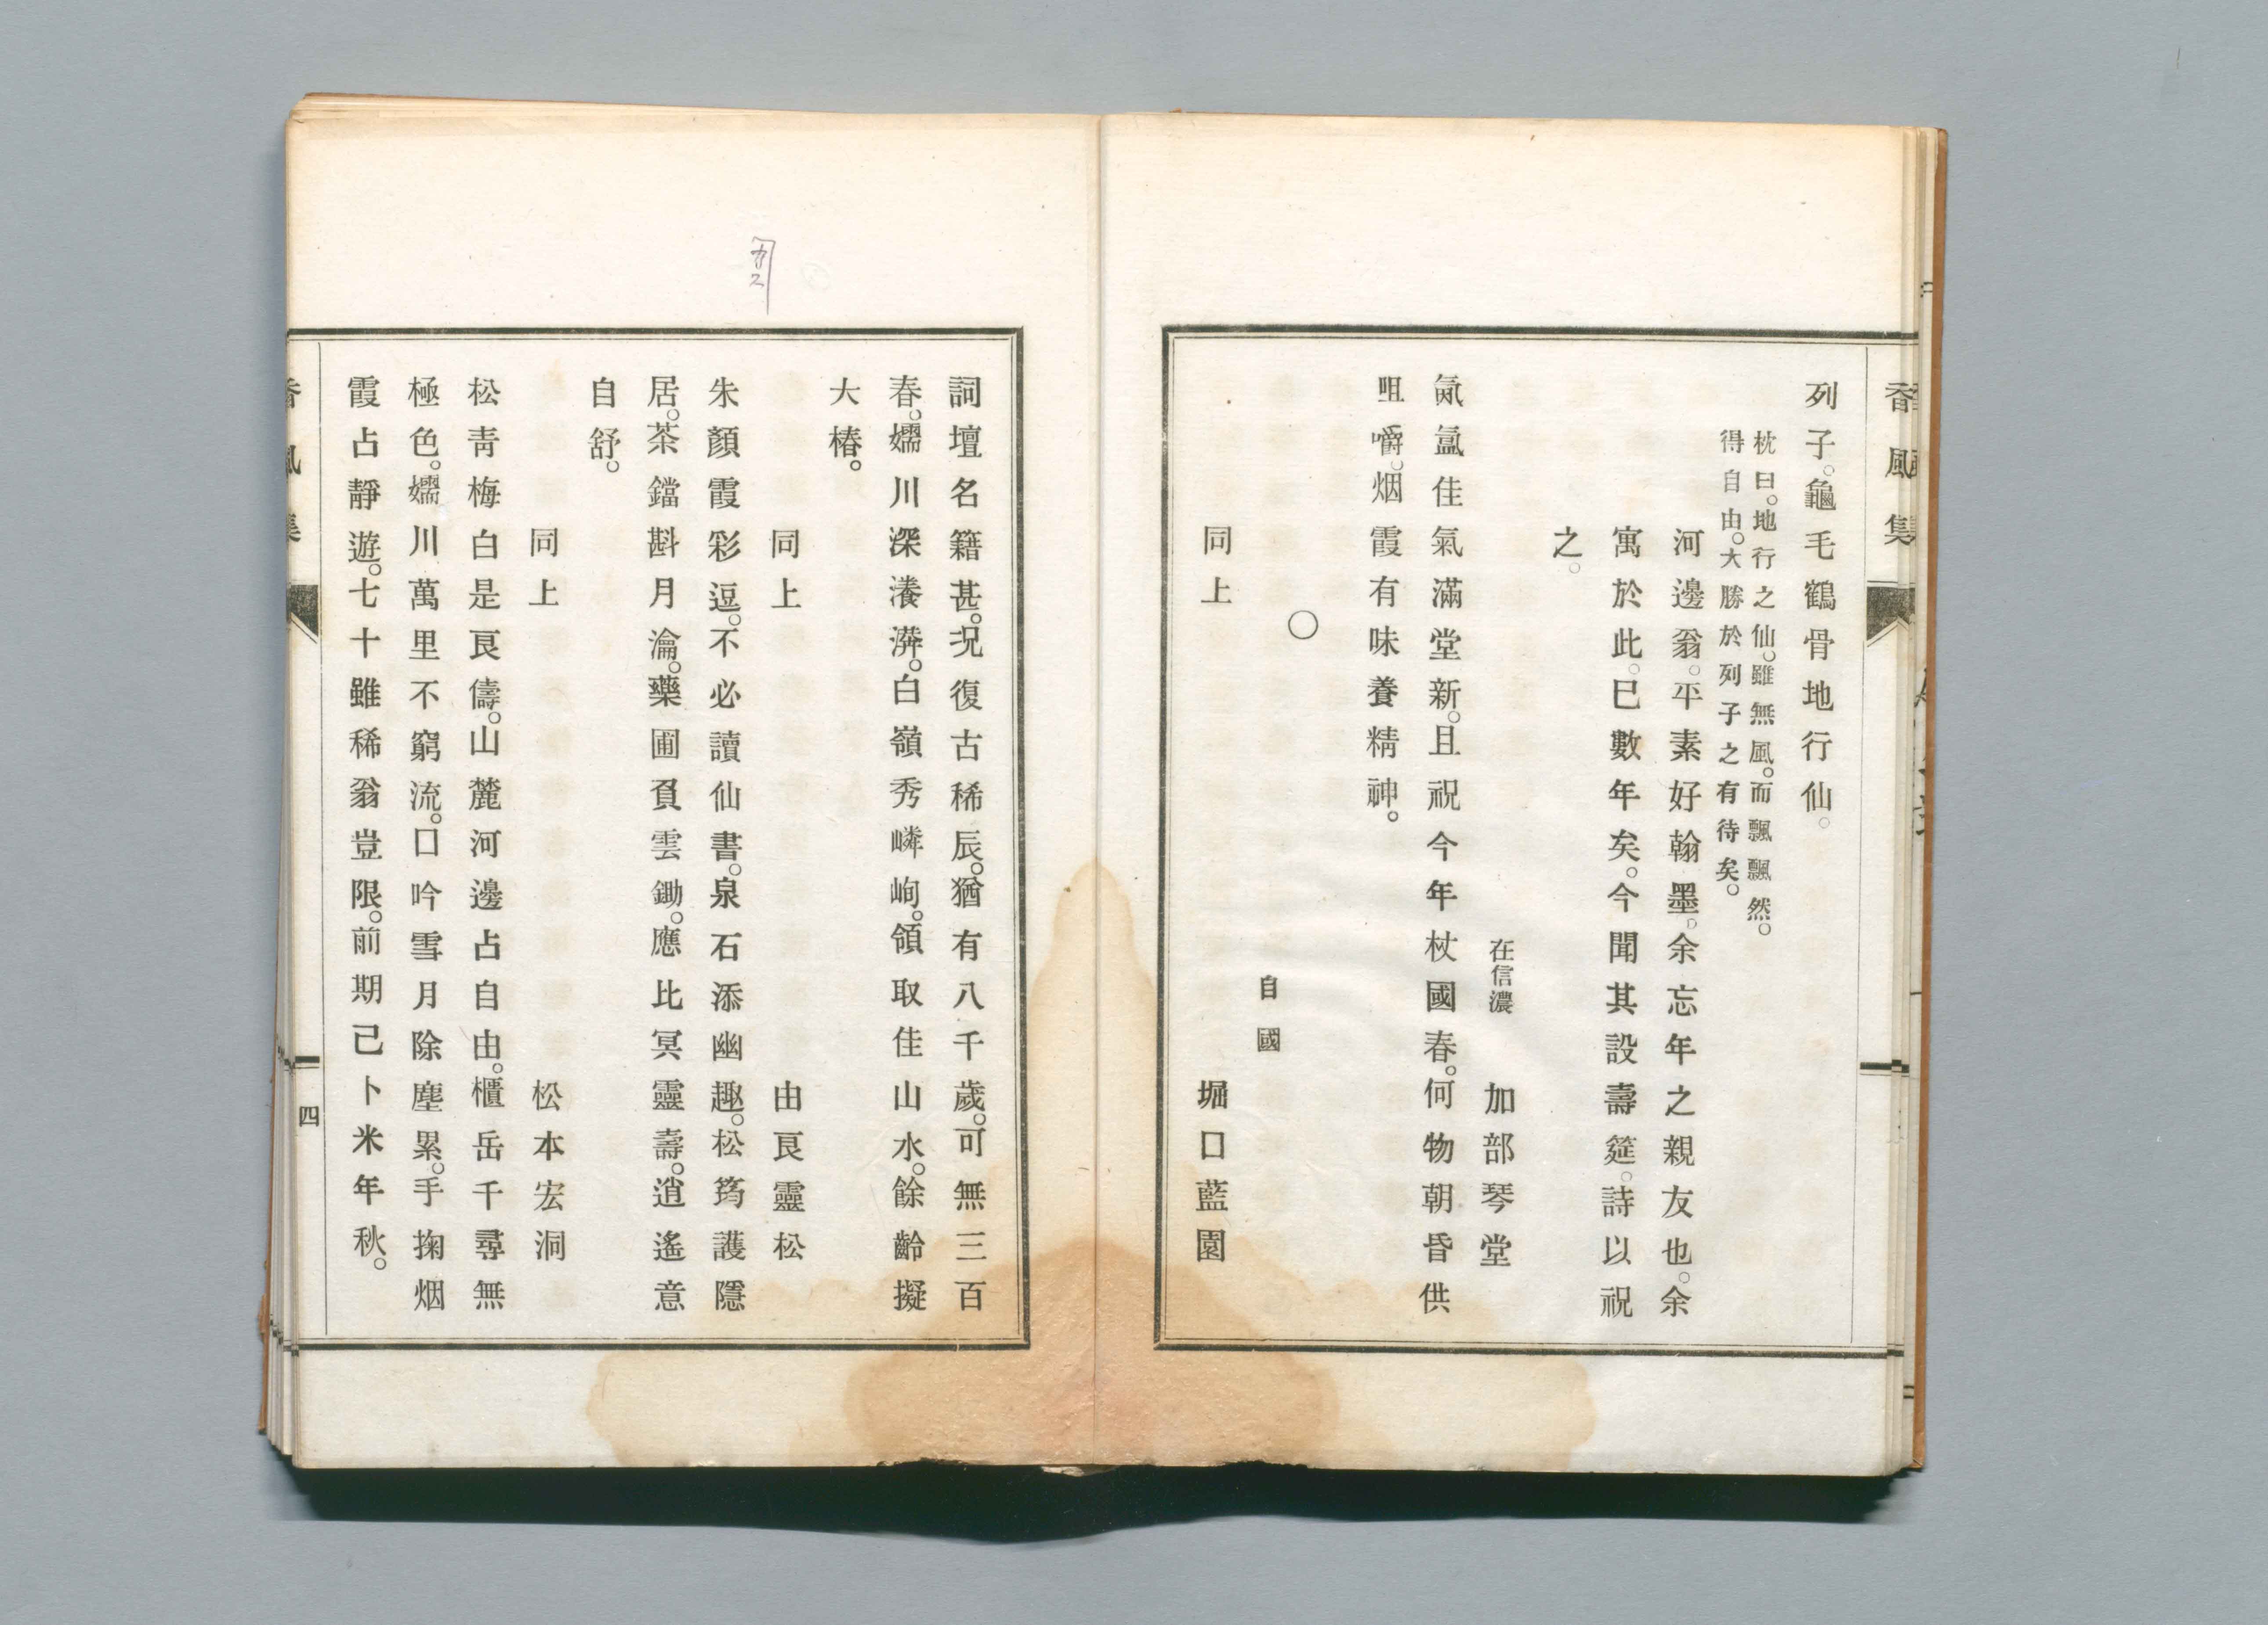 香風集
列子。龜毛鶴骨地行仙。
枕曰。地行之仙。雖無風。而飄飄然。
得自由。大勝於列子之有待矣。
河邊翁。平素好翰墨。余忘年之親友也。余
寓於此。已數年矣。今聞其設壽筵。詩以祝
之。
在信濃　加部琴堂
氤氳佳氣滿堂新。且祝今年杖國春。何物朝昏供
咀嚼。烟霞有味養精神。
○
自國
同上　堀口藍園
詞壇名籍甚。况復古稀辰。猶有八千歲。可無三百
春。嬬川深瀁漭。白嶺秀嶙峋。領取佳山水。餘齡擬
大椿。
同上　由良靈松
朱顏霞彩逗。不必讀仙書。泉石添幽趣。松筠護隱
居。茶鐺斟月瀹。藥圃負雲鋤。應比冥靈壽。逍遙意
自舒。
同上　松本宏洞
松靑梅白是良儔。山麓河邊占自由。櫃岳千尋無
極色。嬬川萬里不窮流。口吟雪月除塵累。手掬烟
霞占靜遊。七十雖稀翁豈限。前期已卜米年秋。
香風集
四